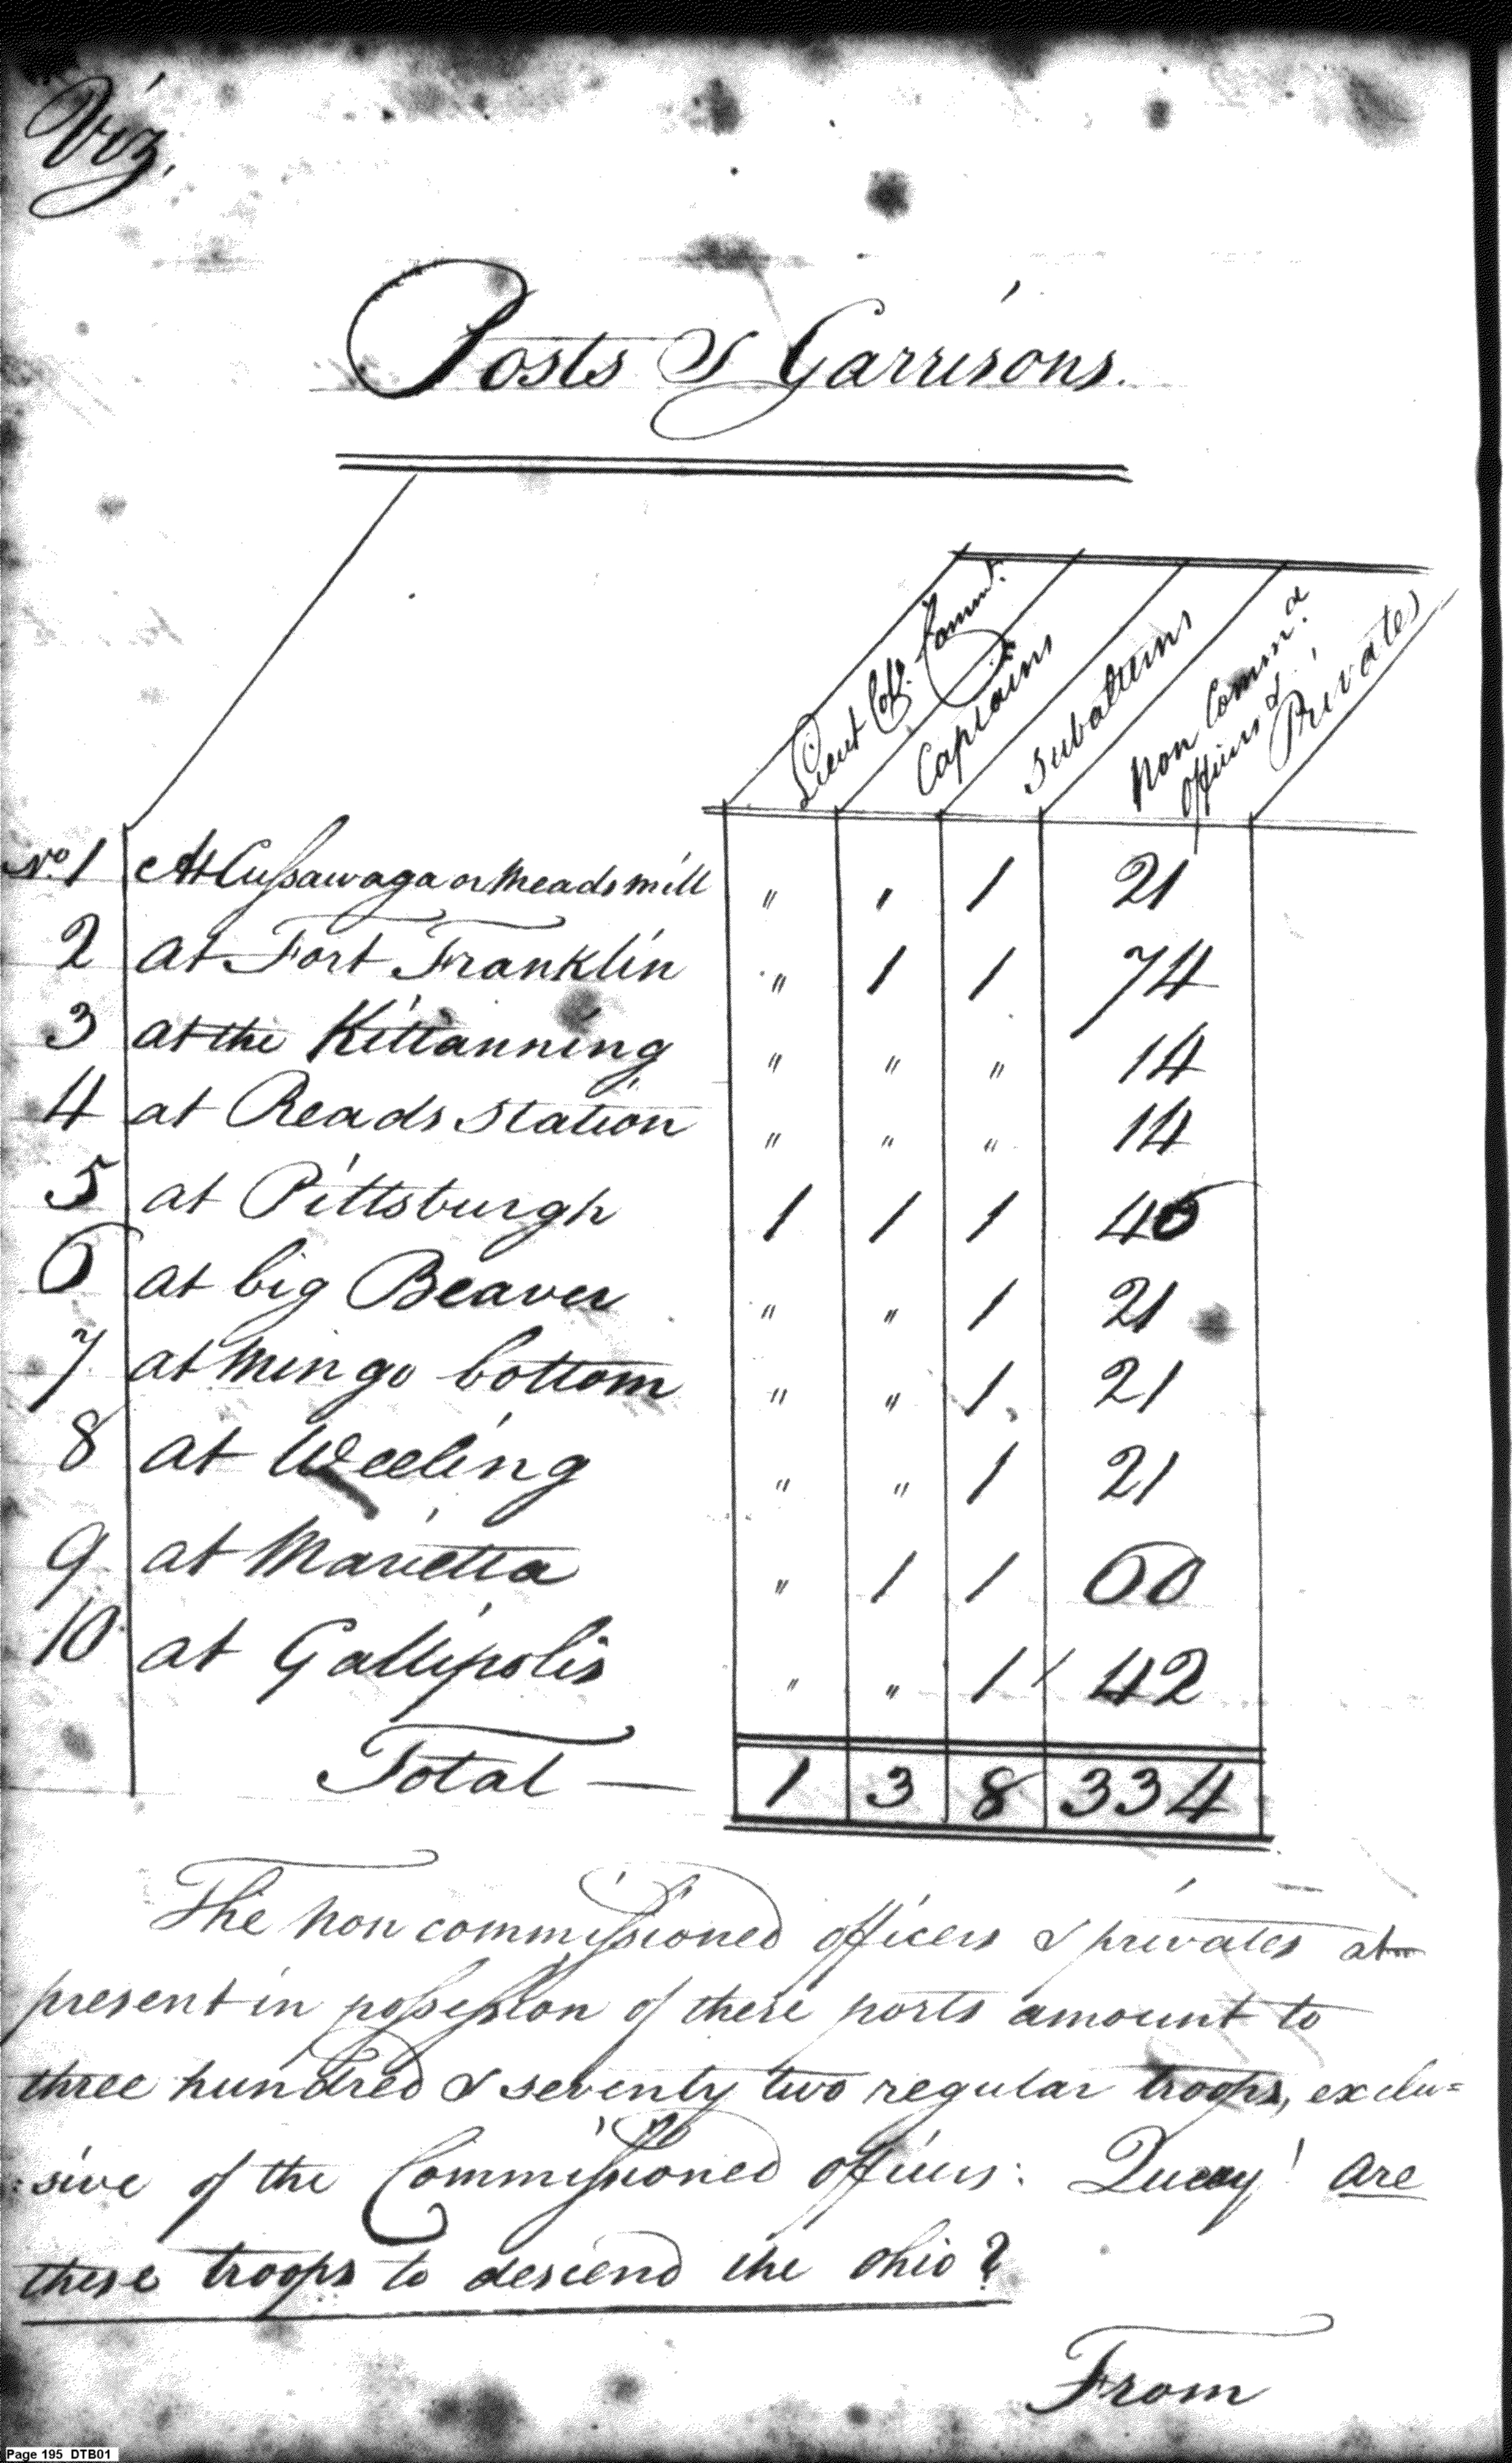 Viz,
Posts & Garrisons.
Lieut Col. Commt.
Captains
Subalterns
Non Commd.
officers &
Privates
No. 1 At Cussawaga or Meads mill " " 1 21
2 at Fort Franklin " 1 1 74
3 at the Kittanning " " " 14
4 at Reads Station " " " 14
5 at Pittsburgh 1 1 1 46
6 at big Beaver " " 1 21
7 at Mingo bottom " " 1 21
8 at Weeling " " 1 21
9 at Marietta " 1 1 60
10 at Gallipolis " " 1 42
Total — 1 3 8 334
The non commissioned officers & privates at
present in possession of these posts amount to
three hundred & seventy two regular troops, exclu=
:sive of the Commissioned officers: Query! are
these troops to descend the Ohio?
From
Page 195 DTB01